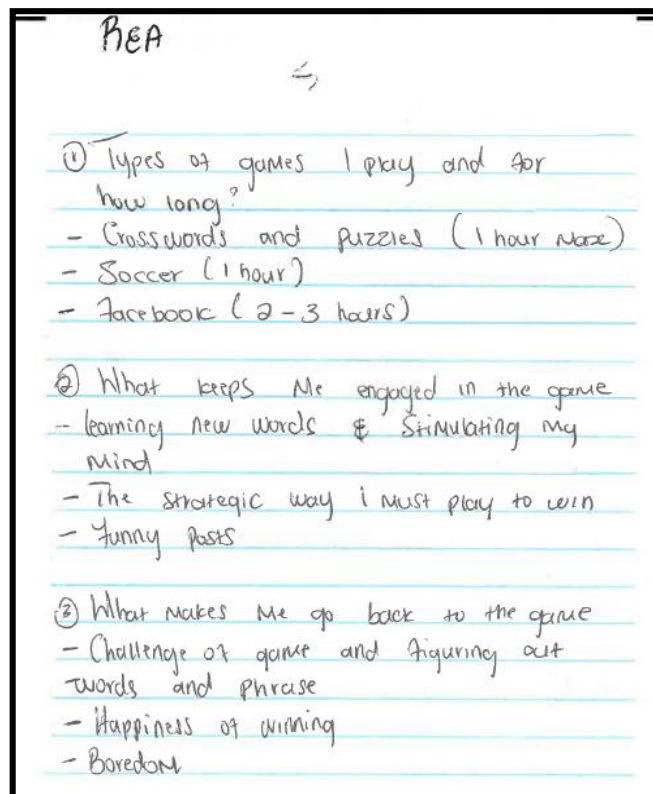 REA
① Types of games I play and for
how long?
- Crosswords and puzzles (1 hour Max)
- Soccer (1 hour)
- Facebook (2-3 hours)
② What keeps Me engaged in the game
- learning new words & Stimulating My
Mind
- The strategic way i must play to win
- Funny posts
③ What makes Me go back to the game
- Challenge of game and figuring out
words and phrase
- Happiness of winning
- Boredom